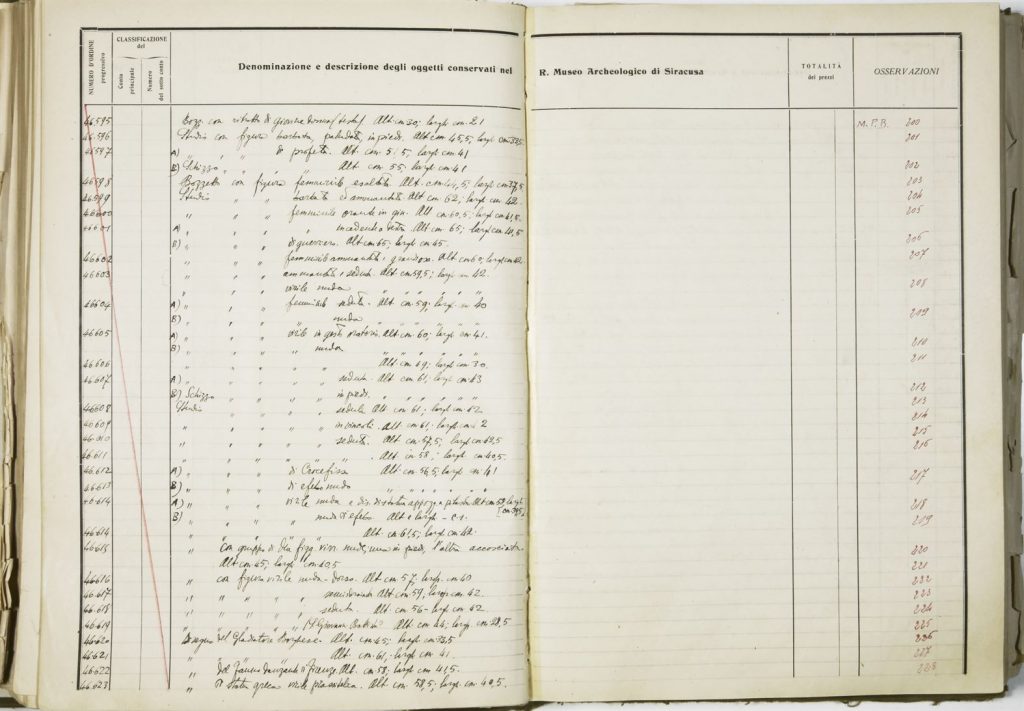 NUMERO D'ORDINE progressivo
CLASSIFICAZIONE del
Conto principale
Numero del sotto conto
Denominazione e descrizione degli oggetti conservati nel R. Museo Archeologico di Siracusa
TOTALITÀ dei prezzi
OSSERVAZIONI
46.595 Bozz. con ritratto di giovane donna (testa) Alt cm 30; largh cm. 21 M.P.B. 200
46.596 Studio con figura barbata, palludata, in piedi. Alt cm. 45,5, largh cm 32,5 201
46.597 A) " " " di profeta. Alt. cm. 51,5, largh cm 41
B) Schizzo " " " Alt. cm 55. largh cm 41 202
46598 Bozzetto con figura femminile esaltata. Alt. cm 44,5; largh cm 37,5 203
46599 Studio " " barbata ed ammantata. Alt cm 62; largh cm. 42 204
46600 " " " femminile orante in gin. Alt cm 60,5; largh cm 41,5 205
46601 A) " " " Alt. cm. 65; largh cm 41,5
B) " " " di guerriero. Alt cm 65; largh cm 45. 206
46602 " " " femminile ammantata Alt. cm 60; largh cm 42 207
46603 " " " ammantata e seduta. Alt. cm 59,5; largh cm 42.
" " " virile nuda " " " " 208
46604 A) " " " femminile seduta. Alt. cm. 59; largh. cm 40
B) " " " nuda 209
46605 A) " " " virile in gesto oratorio. Alt. cm. 60; largh cm. 41.
B) " " " " nuda 210
46606 " " " " Alt. cm 49; largh cm 30. 211
46607 A) " " " " seduta. Alt. cm 61; largh cm 43
B) Schizzo " " " in piedi. " " " " 212
46608 Studio " " " seduta. Alt. cm 61; largh cm 42 213
46609 " " " " in vincoli. Alt cm. 61; largh cm 42 214
46610 " " " " seduta. Alt. cm. 57,5; largh cm 42,5 215
46.611 " " " " " Alt. cm 58; largh cm 40,5. 216
46.612 A) " " " di Crocefisso Alt cm 56,5; largh cm 41
46.613 B) " " " di efebo nudo " " " " 217
46.614 A) " " " virile nuda Alt cm 59, largh cm 39,5, 218
B) " " " " nuda di efebo Alt e largh - c.s. 219
46.614 " " " " Alt. cm 61,5; largh cm 42.
46.615 " con gruppo di due figg. virili nude, una in piedi, l'altra accosciata 220
Alt cm 45; largh cm 40,5 221
46616 " con figura virile nuda - dorso. Alt cm 57; largh. cm 40 222
46.617 " " " " semisdraiata Alt cm 59; largh cm 42. 223
46.618 " " " " seduta. Alt cm 56 - largh cm 42 224
46.619 " " " " (S. Giovanni Battista) Alt. cm 44; largh. cm 28,5 225
46.620 Disegno del Gladiatore Borghese. Alt. cm 45; largh cm 33,5 226
46.621 " " " Alt. cm. 61; largh cm 41. 227
46.622 " del Fauno danzante di Firenze. Alt. cm 58; largh cm 41,5. 228
46.623 " di statua greca virile Alt. cm. 58,5; largh. cm 40,5.